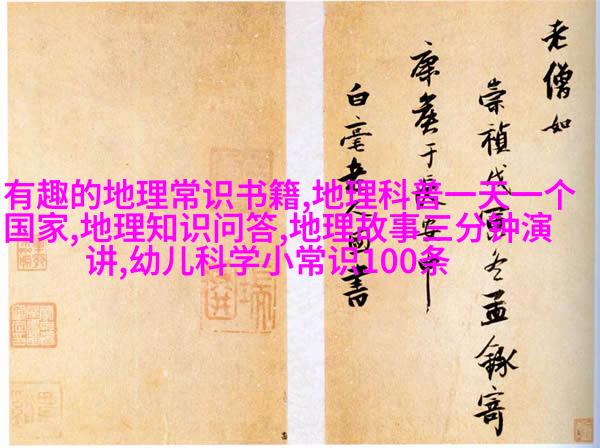 老僧如
崇禎戊寅冬孟錄寄
康侯于長安中
白毫菴人圖書
有趣的地理常识书籍,地理科普一天一个
国家,地理知识问答,地理故事三分钟演
讲,幼儿科学小常识100条